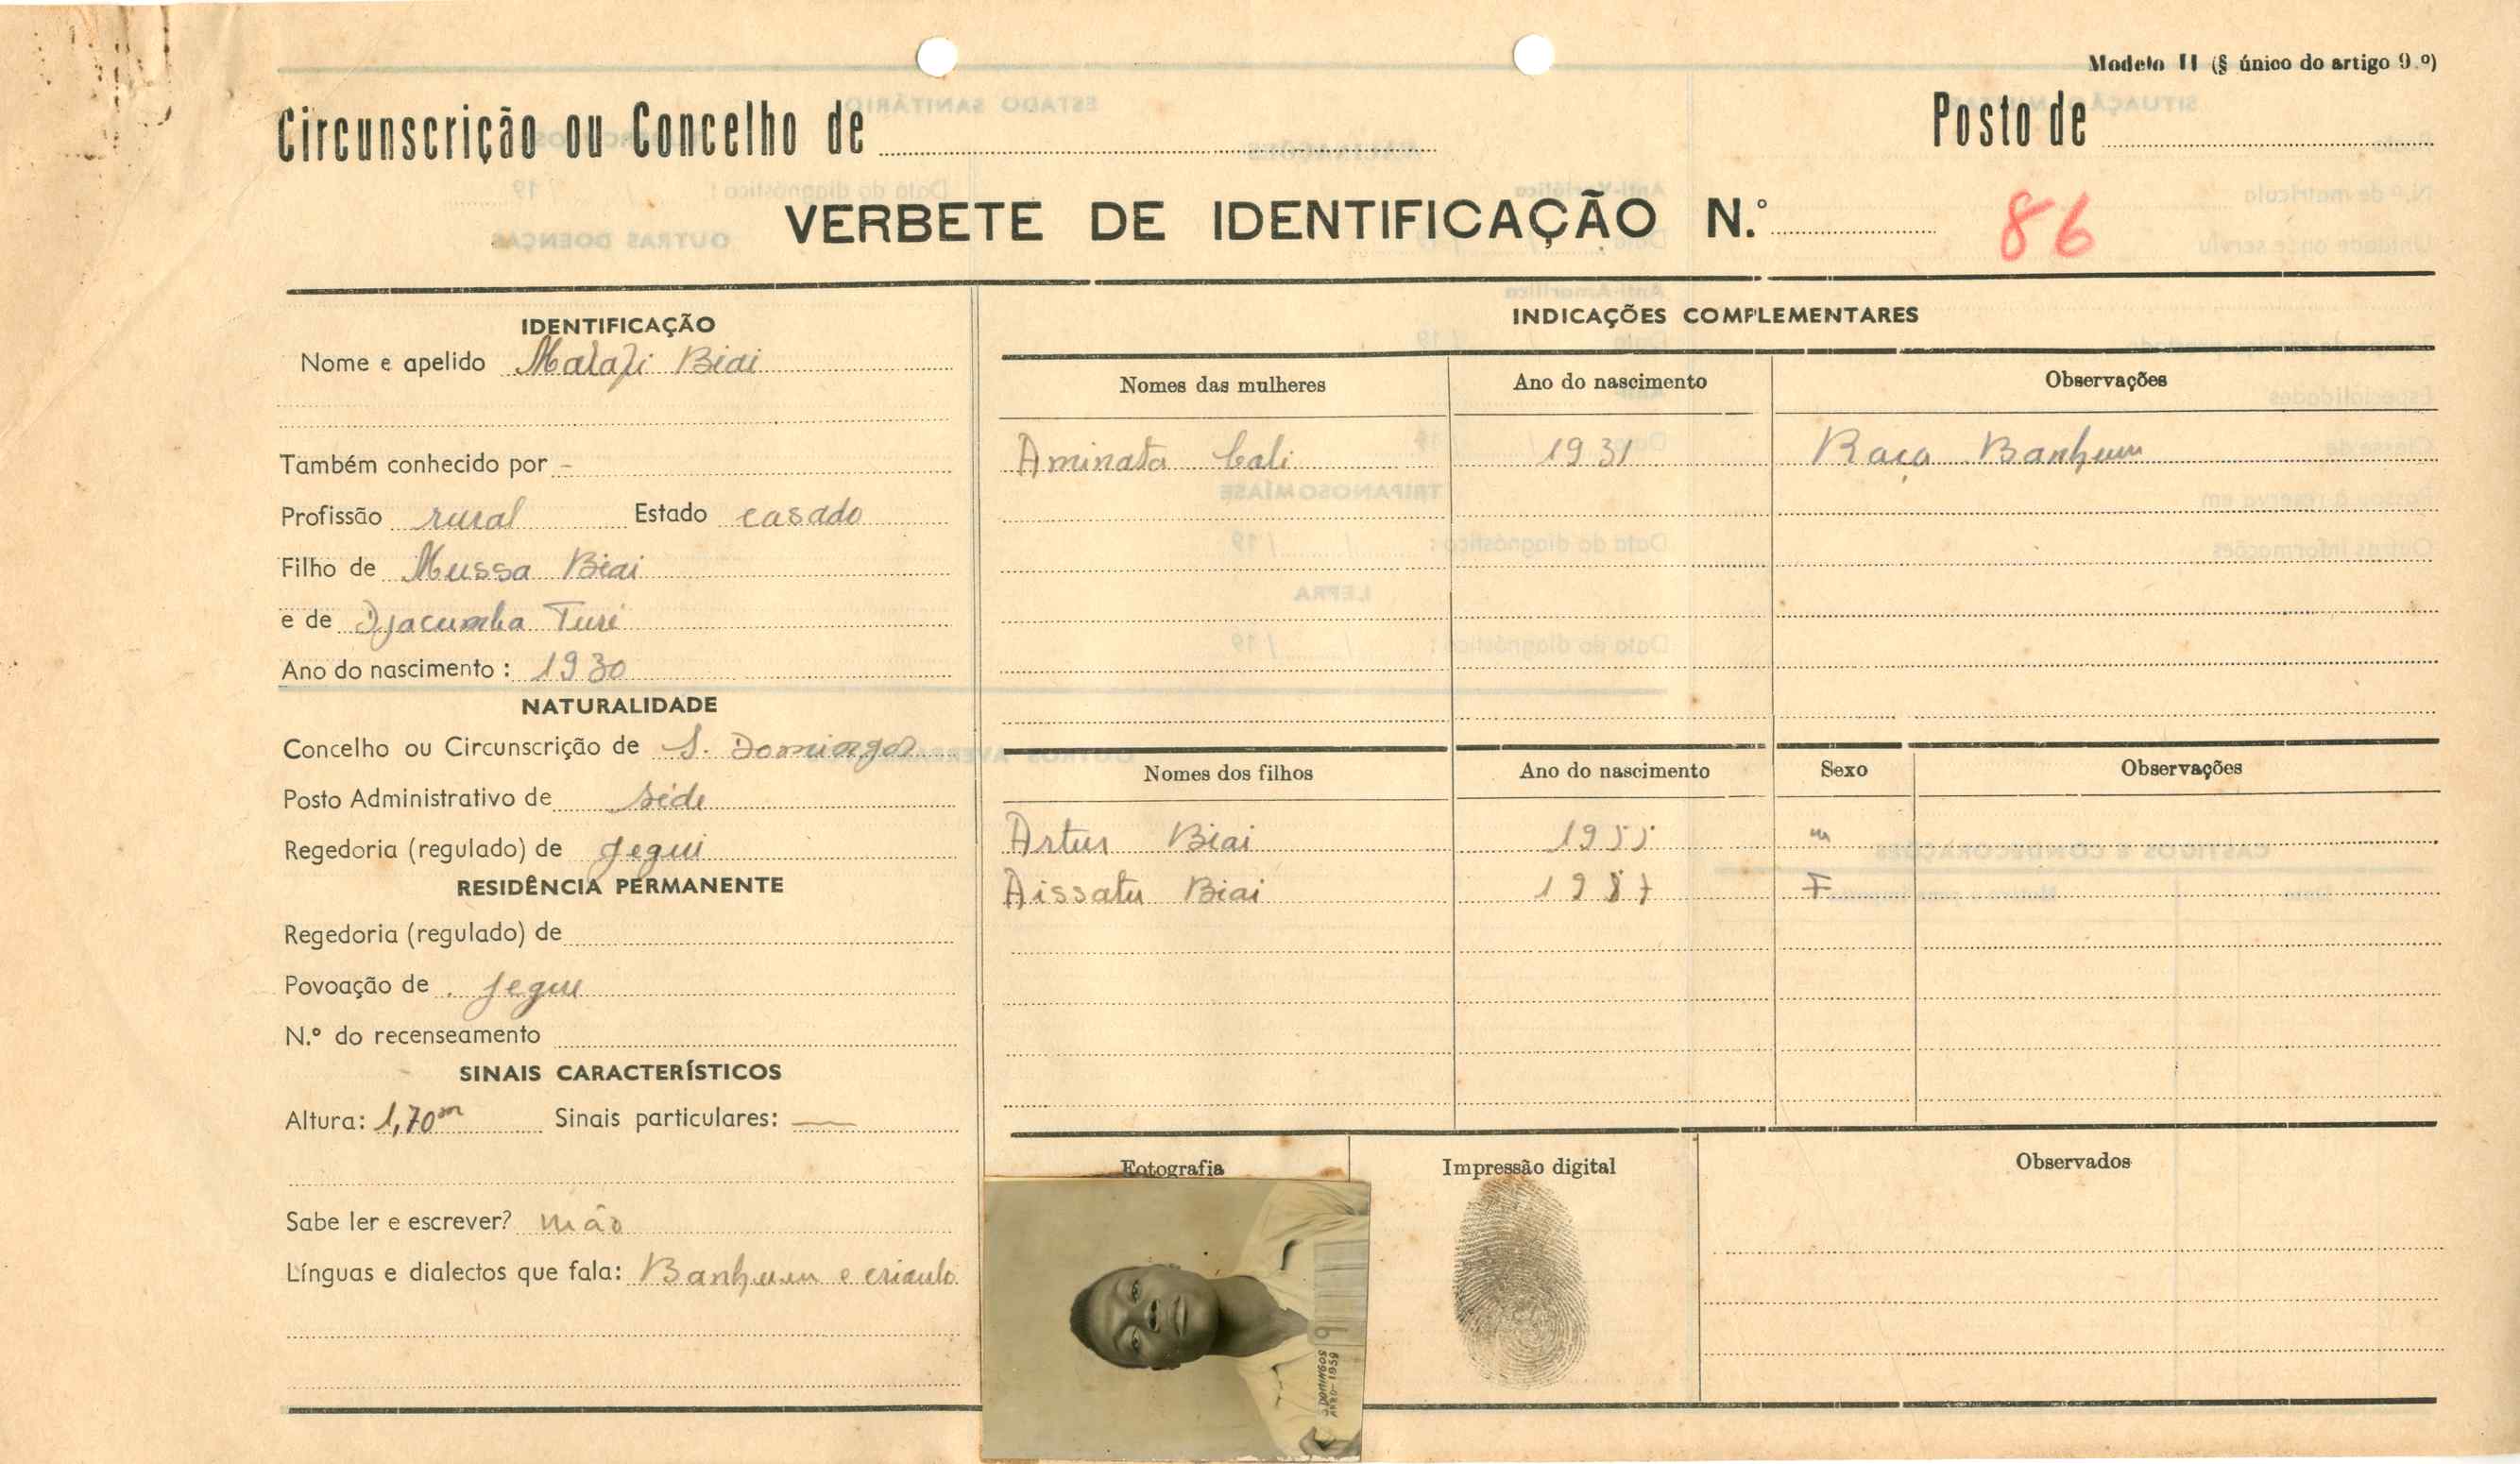 Modelo II (§ único do artigo 9.º)
Circunscrição ou Concelho de
Posto de
VERBETE DE IDENTIFICAÇÃO N.º 86
IDENTIFICAÇÃO
Nome e apelido Malafi Biai
Também conhecido por -
Profissão rural Estado casado
Filho de Mussa Biai
e de Djacumba Turé
Ano do nascimento: 1930
NATURALIDADE
Concelho ou Circunscrição de S. Domingos
Posto Administrativo de séde
Regedoria (regulado) de Jegui
RESIDÊNCIA PERMANENTE
Regedoria (regulado) de
Povoação de Jegue
N.º do recenseamento
SINAIS CARACTERÍSTICOS
Altura: 1,70m Sinais particulares: —
Sabe ler e escrever? não
Línguas e dialectos que fala: Banhum e crioulo
INDICAÇÕES COMPLEMENTARES
Nomes das mulheres Ano do nascimento Observações
Aminata Cali 1931 Raça Banhum
Nomes dos filhos Ano do nascimento Sexo Observações
Artur Biai 1955 m
Aissatu Biai F
Fotografia Impressão digital Observados
S. DOMINGOS
ANO-1959